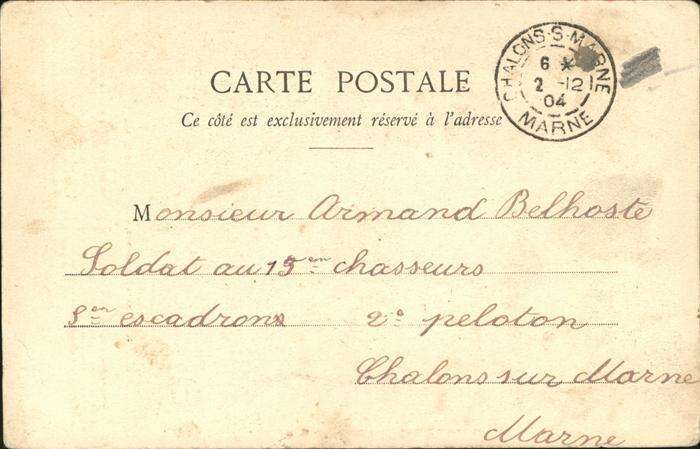 CHALONS-S-MARNE
6 *
2 -12
04
MARNE
CARTE POSTALE
Ce côté est exclusivement réservé à l'adresse
Monsieur Armand Belhoste
Soldat au 15 em chasseurs
5 em escadrons 2e peloton
Chalons sur Marne
Marne